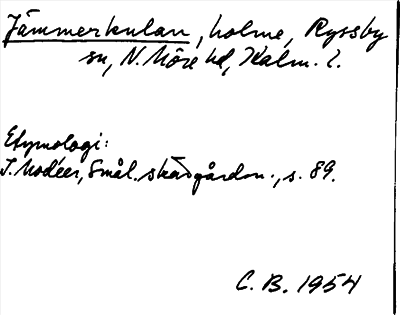 Jämmerkulan, holme, Ryssby
sn, N. Möre hd, Kalm. l.
Etymologi:
I. Modéer, Smål. skärgårdsn., s. 89.
C. B. 1954